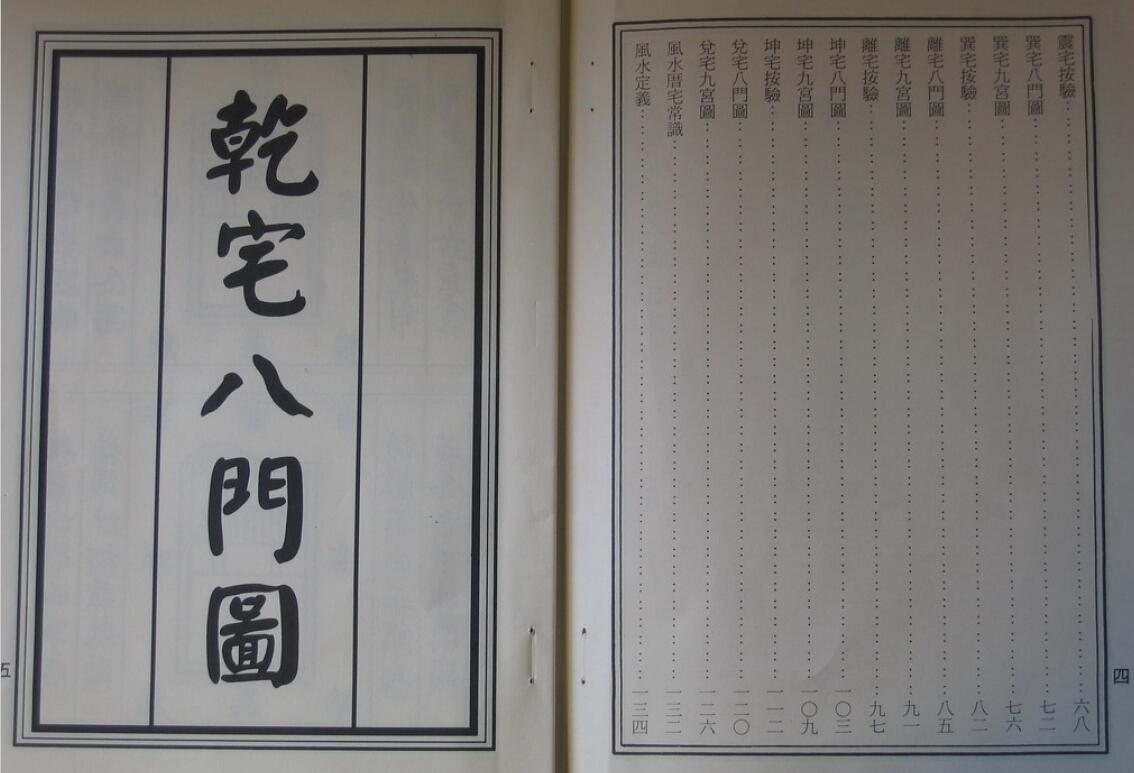 震宅按驗……六八
巽宅八門圖……七二
巽宅九宮圖……七六
巽宅按驗……八二
離宅八門圖……八五
離宅九宮圖……九一
離宅按驗……九七
坤宅八門圖……一〇三
坤宅九宮圖……一〇九
坤宅按驗……一一二
兌宅八門圖……一二〇
兌宅九宮圖……一二六
風水厝宅常識……一三二
風水定義……一三四
四
乾宅八門圖
五